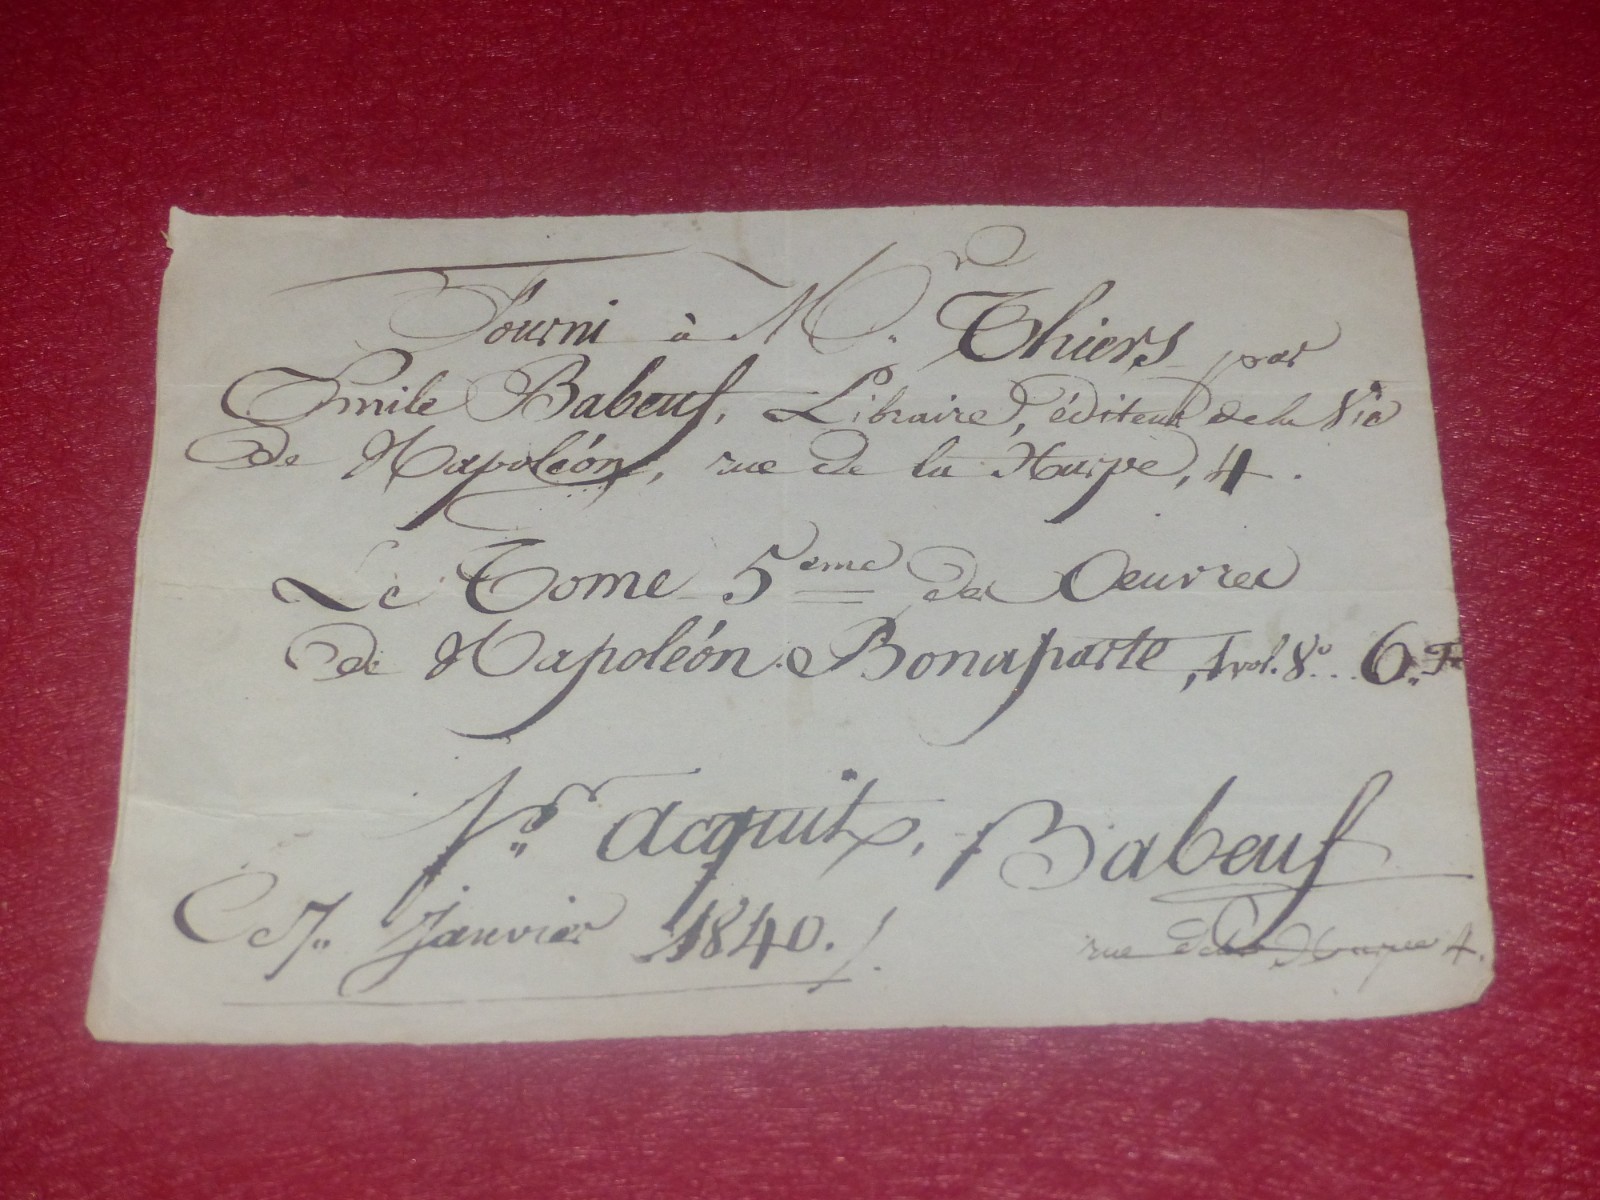 Fourni à Mr. Thiers par
Emile Babeuf, Libraire, éditeur de la Vie
de Napoléon, rue de la Harpe, 4.
Le Tome 5eme des Oeuvres
de Napoléon Bonaparte, 1 vol. 8o... 6.. Fr
Pr. acquit, Babeuf
Ce 7.. Janvier 1840. rue de la Harpe 4.